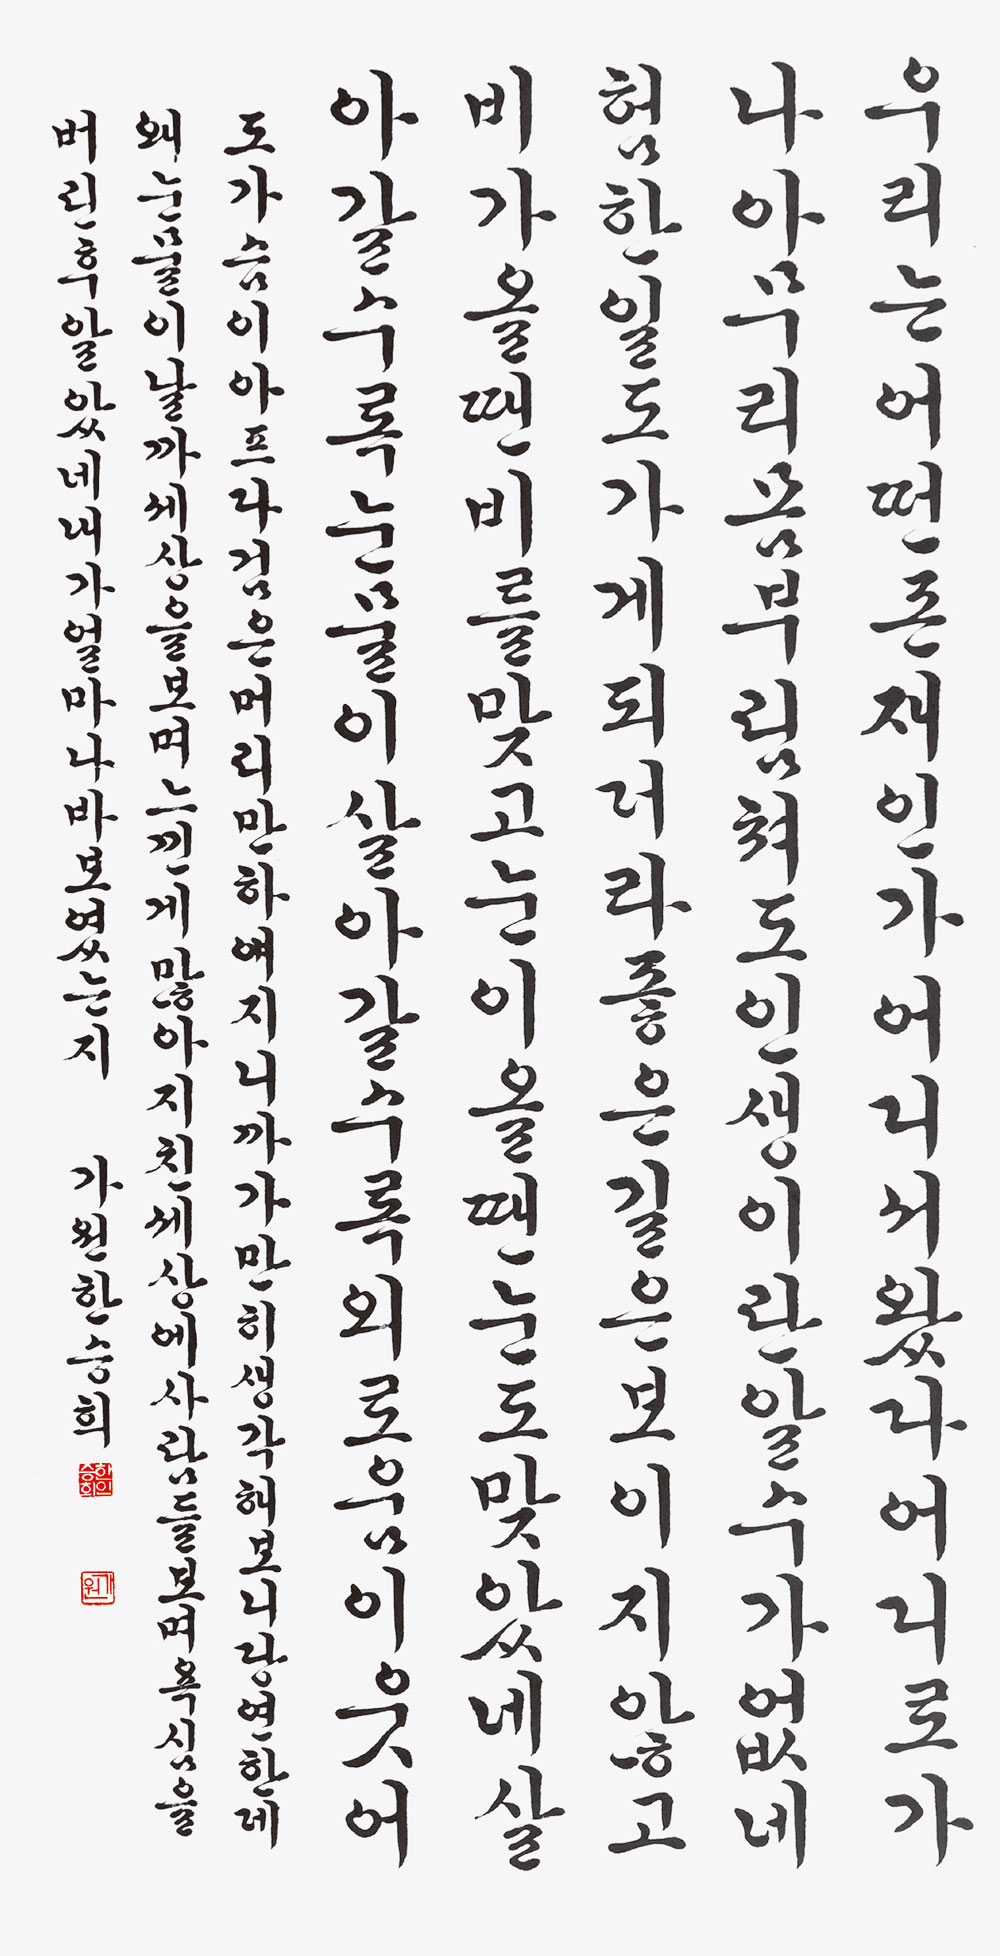 우리는어떤존재인가어디서왔다어디로가
나아무리몸부림쳐도인생이란알수가없네
험한일도가게되더라좋은길은보이지않고
비가올땐비를맞고눈이올땐눈도맞았네살
아갈수록눈물이살아갈수록외로움이웃어
도가슴이아프다검은머리만하얘지니까가만히생각해보니당연한데
왜눈물이날까세상을보며느낀게많아지친세상에사람들보며욕심을
버린후알았네내가얼마나바보였는지 가원한승희
한승희인
가원